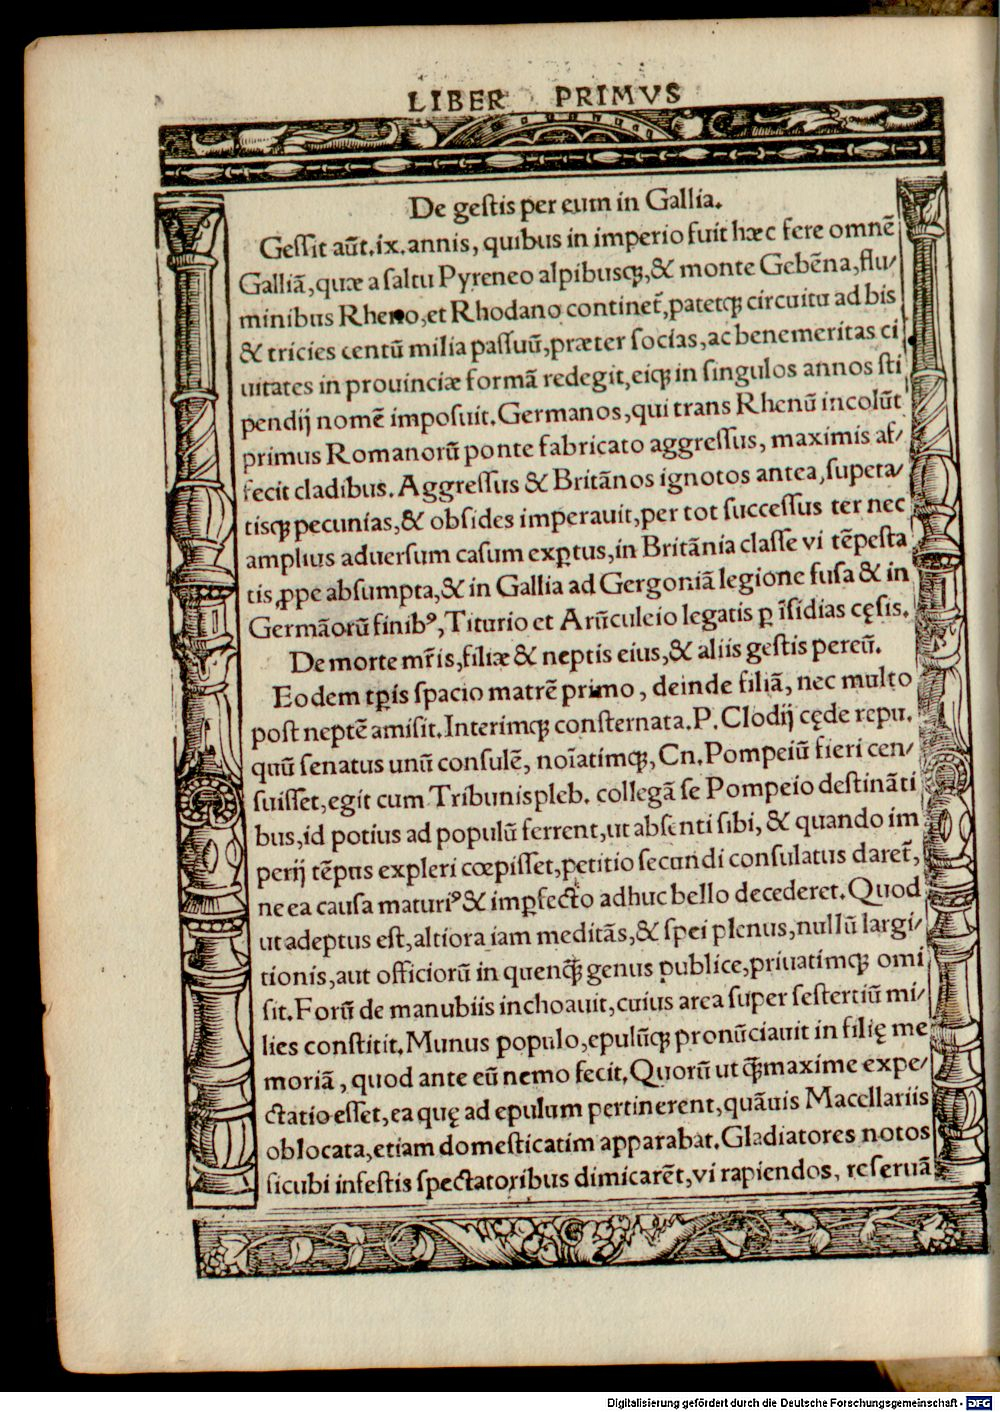 LIBER PRIMVS
De gestis per eum in Gallia.
Gessit aūt.ix.annis, quibus in imperio fuit hæc fere omnē
Galliā,quæ a saltu Pyreneo alpibusq;,& monte Gebēna,flu/
minibus Rheno,et Rhodano continet̄,patetq; circuitu ad bis
& tricies centū milia passuū,præter socias,ac benemeritas ci
uitates in prouinciæ formā redegit,eiq; in singulos annos sti
pendij nomē imposuit.Germanos,qui trans Rhenū incolūt
primus Romanorū ponte fabricato aggressus, maximis af/
fecit cladibus.Aggressus & Britānos ignotos antea,supera/
tisq; pecunias,& obsides imperauit,per tot successus ter nec
amplius aduersum casum exp̱tus,in Britānia classe vi tēpesta
tis ꝓpe absumpta,& in Gallia ad Gergoniā legione fusa & in
Germāorū finibꝰ,Titurio et Arūculeio legatis ꝑ īsidias cęsis.
De morte mr̄is,filiæ & neptis eius,& aliis gestis pereū.
Eodem tꝑis spacio matrē primo, deinde filiā, nec multo
post neptē amisit.Interimq; consternata.P.Clodij cęde repu.
quū senatus unū consulē, noīatimq;,Cn.Pompeiū fieri cen/
suisset,egit cum Tribunispleb. collegā se Pompeio destināti
bus,id potius ad populū ferrent,ut absenti sibi, & quando im
perij tēpus expleri cœpisset,petitio secundi consulatus daret̄,
ne ea causa maturiꝰ & imꝑfecto adhuc bello decederet.Quod
ut adeptus est,altiora iam meditās,& spei plenus,nullū largi/
tionis,aut officiorū in quenq̄ genus publice,priuatimq; omi
sit.Forū de manubiis inchoauit,cuius area super sestertiū mi/
lies constitit.Munus populo,epulūq; pronūciauit in filię me
moriā, quod ante eū nemo fecit.Quorū ut q̄maxime expe/
ctatio esset,ea quę ad epulum pertinerent,quāuis Macellariis
oblocata,etiam domesticatim apparabat.Gladiatores notos
sicubi infestis spectatoribus dimicarēt,vi rapiendos, reseruā
Digitalisierung gefördert durch die Deutsche Forschungsgemeinschaft - DFG